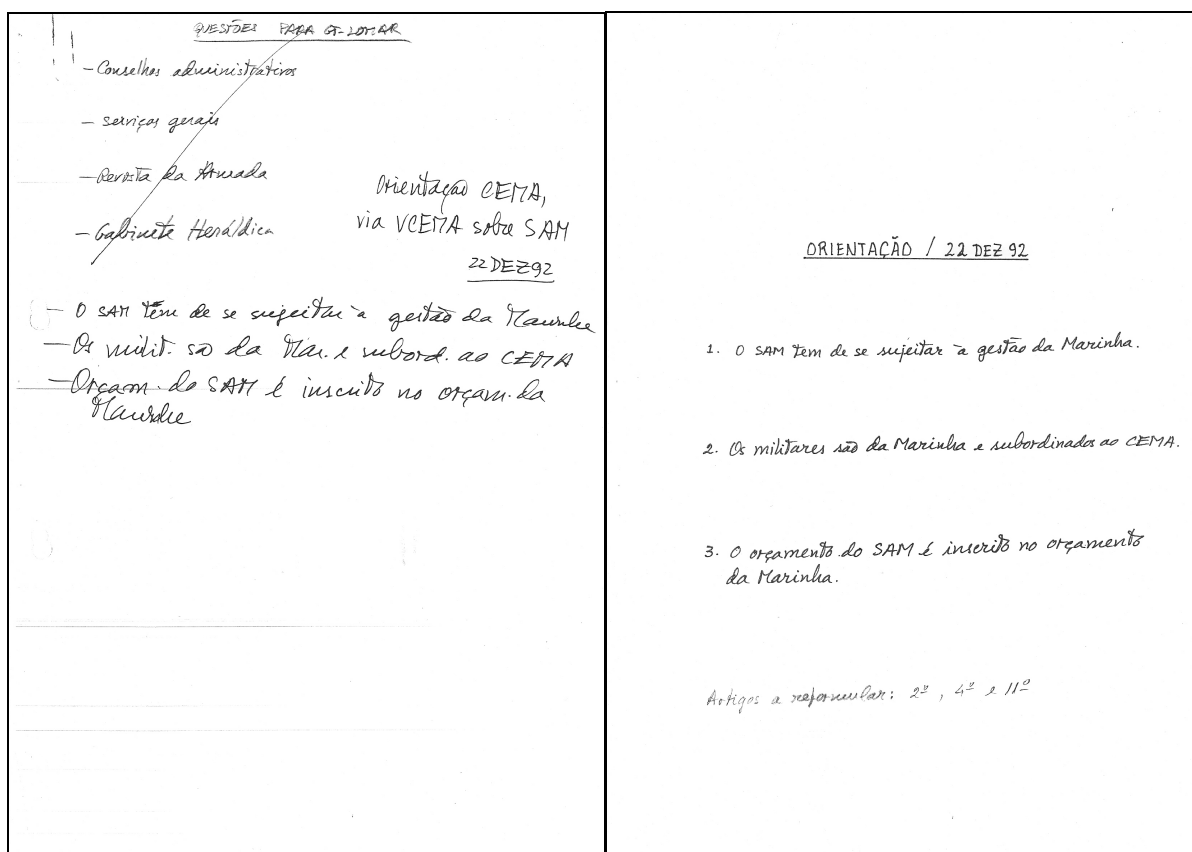 QUESTÕES PARA GT-LOMAR
- Conselhos administrativos
- Serviços gerais
- Revista da Armada
- Gabinete Heráldica
Orientação CEMA,
via VCEMA sobre SAM
22 DEZ 92
- O SAM tem de se sujeitar à gestão da Marinha
- Os milit. são da Mar. e subord. ao CEMA
- Orçam. do SAM é inscrito no orçam. da
Marinha
ORIENTAÇÃO / 22 DEZ 92
1. O SAM tem de se sujeitar à gestão da Marinha.
2. Os militares são da Marinha e subordinados ao CEMA.
3. O orçamento do SAM é inscrito no orçamento
da Marinha.
Artigos a reformular: 2º, 4º e 11º